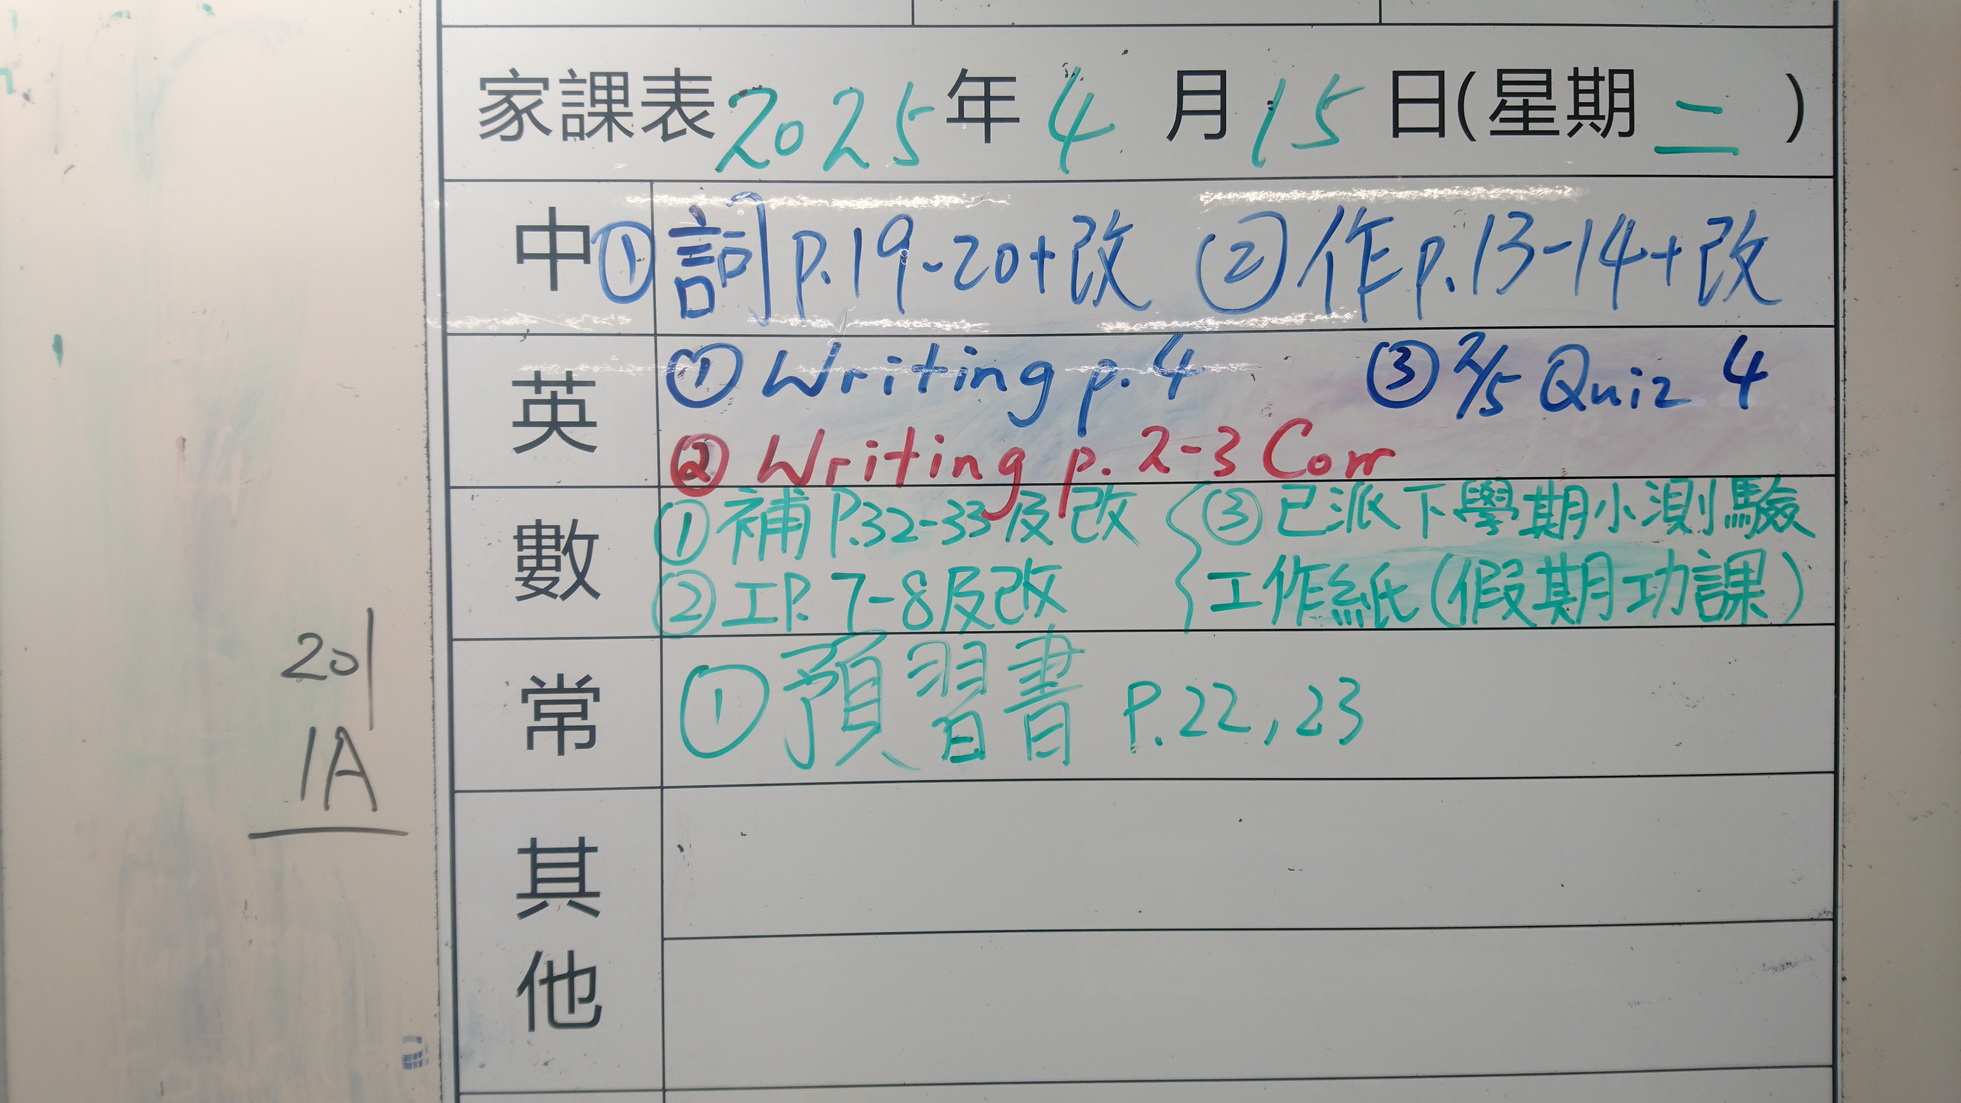 家課表2025年4月15日(星期二)
中 ①詞p.19-20+改 ②作p.13-14+改
英 ①Writing p.4 ③2/5 Quiz 4
②Writing p.2-3 Corr
數 ①補P.32-33及改 ③已派下學期小測驗
②工P.7-8及改 工作紙(假期功課)
常 ①預習書 P.22,23
其他
201
1A